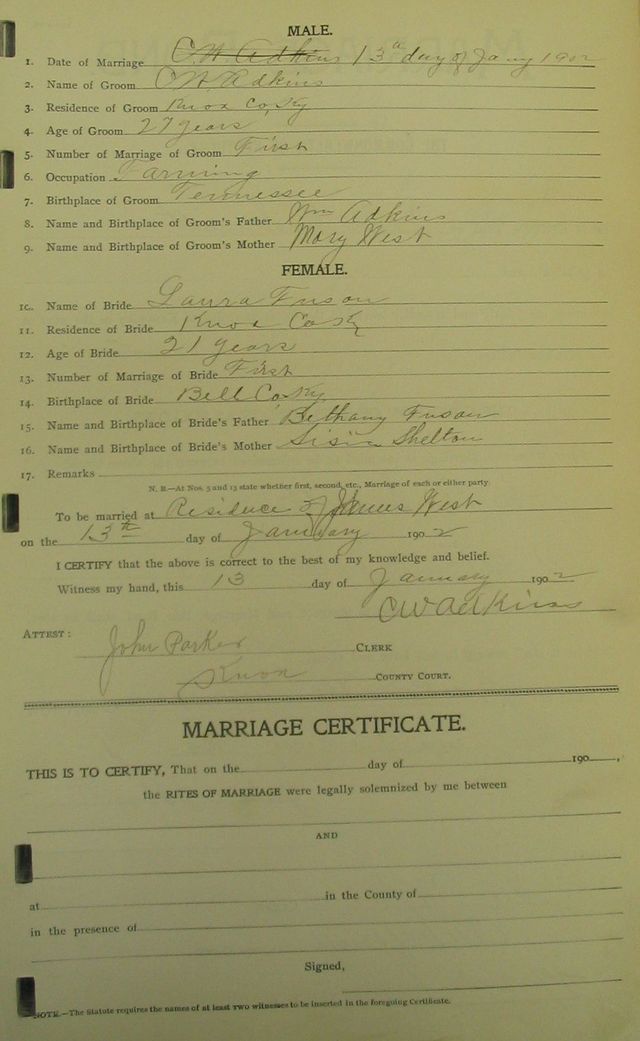 MALE.
1. Date of Marriage C.W. Adkins 13th day of Jany 1902
2. Name of Groom C W Adkins
3. Residence of Groom Knox Co, Ky
4. Age of Groom 27 years
5. Number of Marriage of Groom First
6. Occupation Farming
7. Birthplace of Groom Tennessee
8. Name and Birthplace of Groom's Father Wm Adkins
9. Name and Birthplace of Groom's Mother Mary West
FEMALE.
10. Name of Bride Laura Fuson
11. Residence of Bride Knox Co Ky
12. Age of Bride 21 years
13. Number of Marriage of Bride First
14. Birthplace of Bride Bell Co Ky
15. Name and Birthplace of Bride's Father Bethany Fuson
16. Name and Birthplace of Bride's Mother Shelton
17. Remarks
N. B.—At Nos. 5 and 13 state whether first, second, etc., Marriage of each or either party
To be married at Residence of James West
on the 13th day of January 1902
I CERTIFY that the above is correct to the best of my knowledge and belief.
Witness my hand, this 13 day of January 1902
C W Adkins
ATTEST: John Parker CLERK
Knox COUNTY COURT.
MARRIAGE CERTIFICATE.
THIS IS TO CERTIFY, That on the day of 190 ,
the RITES OF MARRIAGE were legally solemnized by me between
AND
at in the County of
in the presence of
Signed,
NOTE.—The Statute requires the names of at least two witnesses to be inserted in the foregoing Certificate.